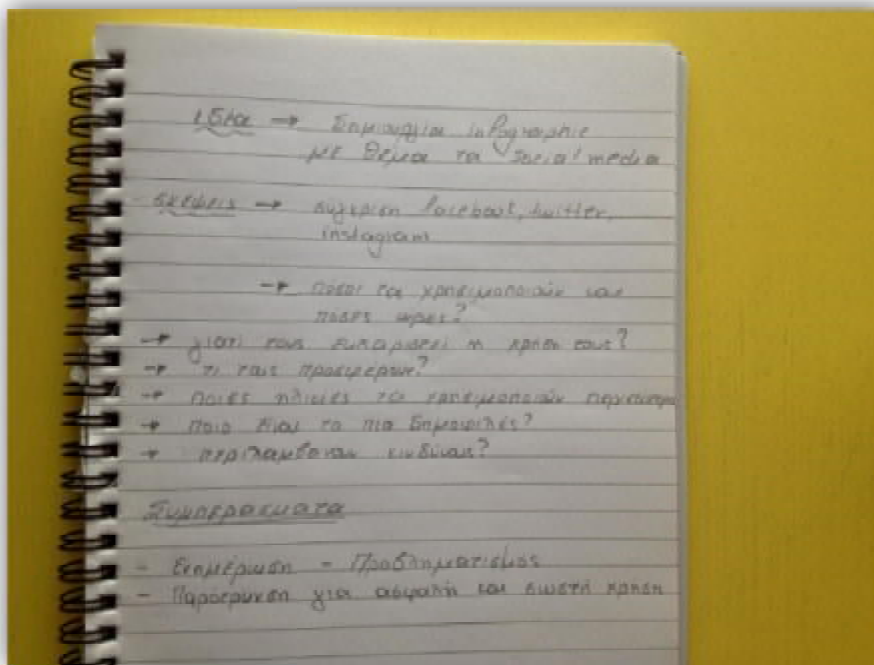 ιδέα → Δημιουργία infographic
με θέμα τα social media
σκέψεις → σύγκριση facebook, twitter,
instagram
→ πόσοι τα χρησιμοποιούν και
πόσες ώρες?
→ γιατί τους ευχαριστεί η χρήση τους?
→ τι τους προσφέρουν?
→ ποιες ηλικίες τα χρησιμοποιούν περισσότερο
→ ποιο είναι το πιο δημοφιλές?
→ περιλαμβάνουν κινδύνους?
Συμπεράσματα
- Ενημέρωση - Προβληματισμός
- Παρότρυνση για ασφαλή και σωστή χρήση